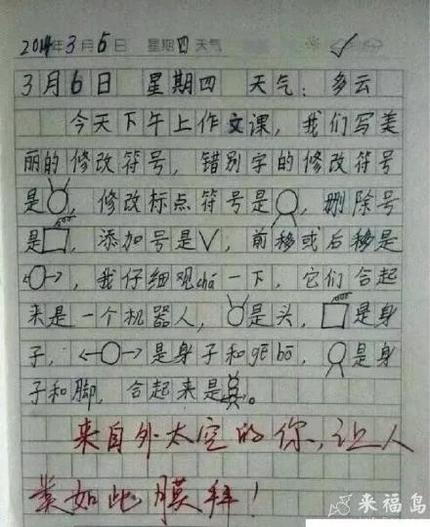 2014年3月6日 星期四 天气
3月6日 星期四 天气：多云
今天下午上作文课，我们写美
丽的修改符号，错别字的修改符号
是，修改标点符号是，删除号
是，添加号是∨，前移或后移是
←○→，我仔细观chá一下，它们合起
来是一个机器人，是头，是身
子，←○→是身子和gē bō，是身
子和脚，合起来是。
来自外太空的你，让人
如此膜拜！
来福岛